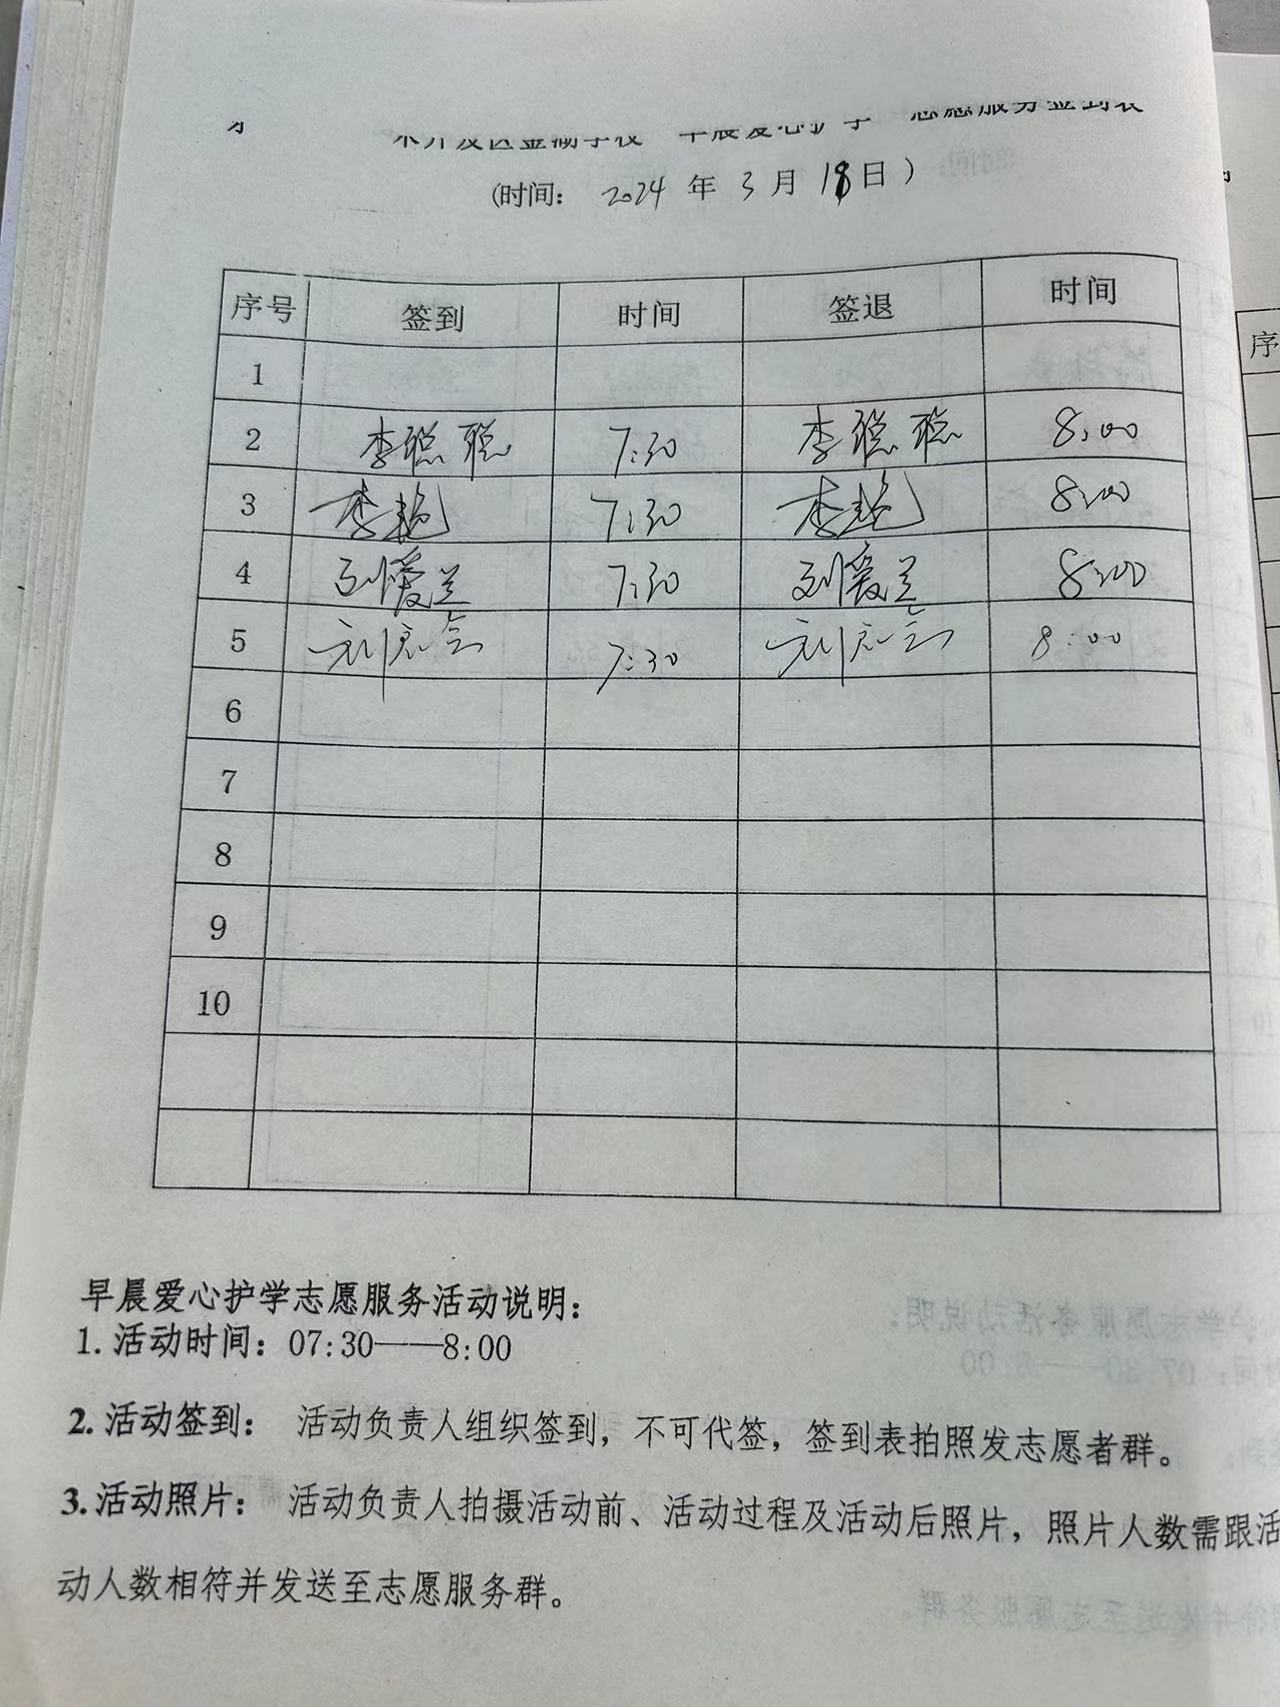 早晨爱心护学 志愿服务签到表
(时间: 2024 年 3 月 18 日)
序号 签到 时间 签退 时间
1
2 李聪聪 7:30 李聪聪 8:00
3 李艳 7:30 李艳 8:00
4 刘爱兰 7:30 刘爱兰 8:00
5 7:30 8:00
6
7
8
9
10
早晨爱心护学志愿服务活动说明:
1. 活动时间: 07:30——8:00
2. 活动签到: 活动负责人组织签到, 不可代签, 签到表拍照发志愿者群。
3. 活动照片: 活动负责人拍摄活动前、活动过程及活动后照片, 照片人数需跟活
动人数相符并发送至志愿服务群。
序